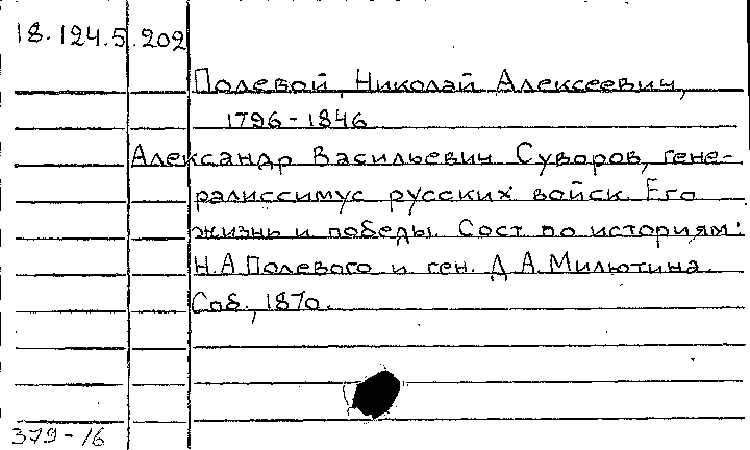 18.124.5.202
Полевой, Николай Алексеевич,
1796-1846
Александр Васильевич Суворов, гене-
ралиссимус русских войск. Его
жизнь и победы. Сост. по историям:
Н.А.Полевого и ген. Д.А.Милютина.
Спб., 1870.
379-16